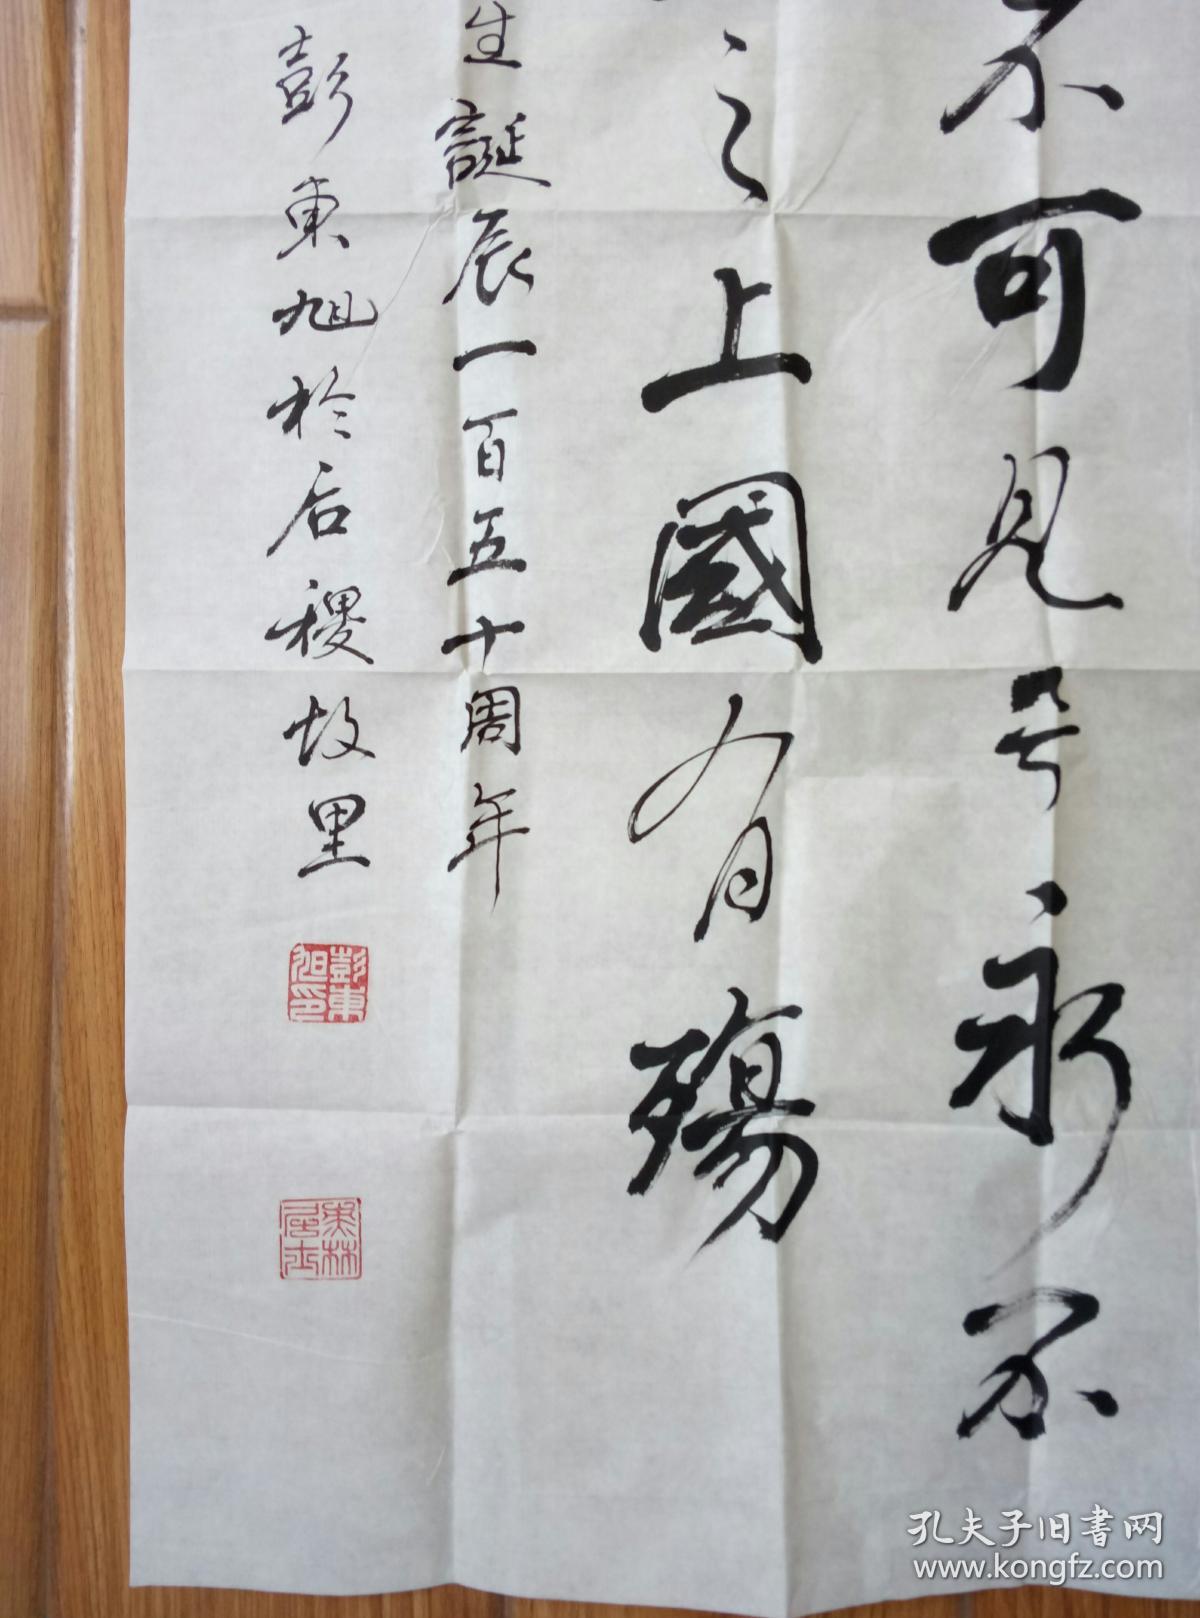 不可見兮永不
之上國有殤
生誕辰一百五十周年
彭東旭於后稷故里
彭東旭印
孔夫子旧書网
www.kongfz.com